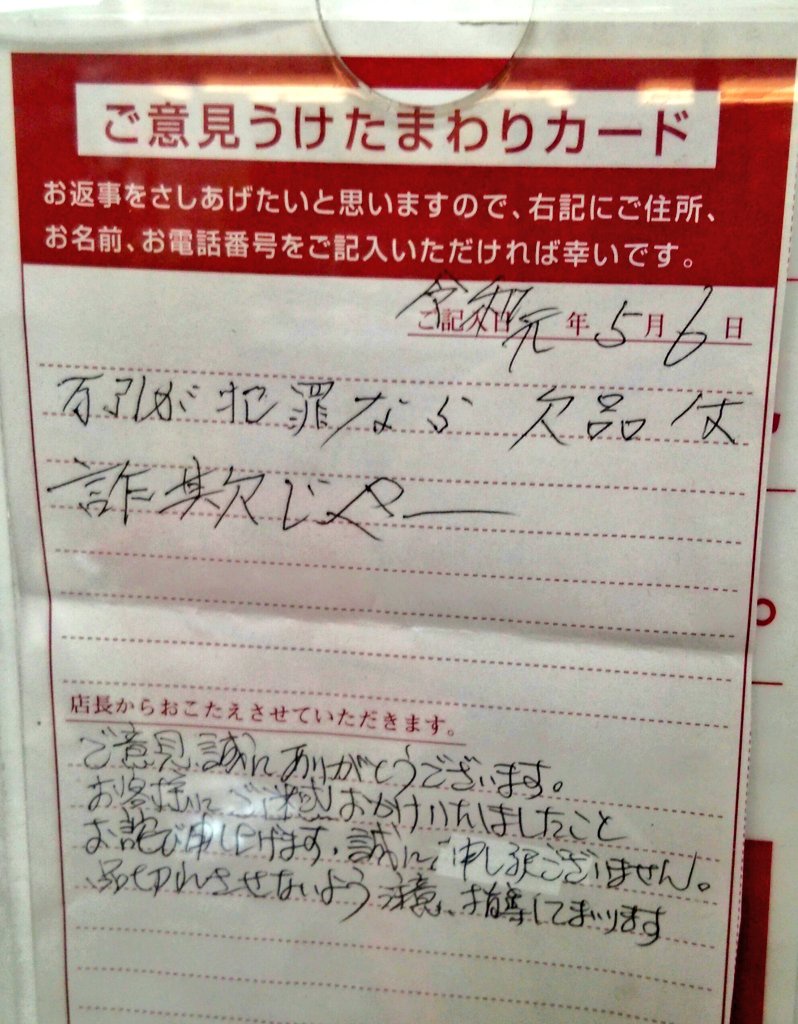 ご意見うけたまわりカード
お返事をさしあげたいと思いますので、右記にご住所、
お名前、お電話番号をご記入いただければ幸いです。
ご記入日 令和元年5月6日
万引が犯罪なら 欠品は
詐欺じゃー
店長からおこたえさせていただきます。
ご意見誠にありがとうございます。
お客様にご迷惑おかけいたしましたこと
お詫び申し上げます。誠に申し訳ございません。
品切れさせないよう 注意、指導してまいります